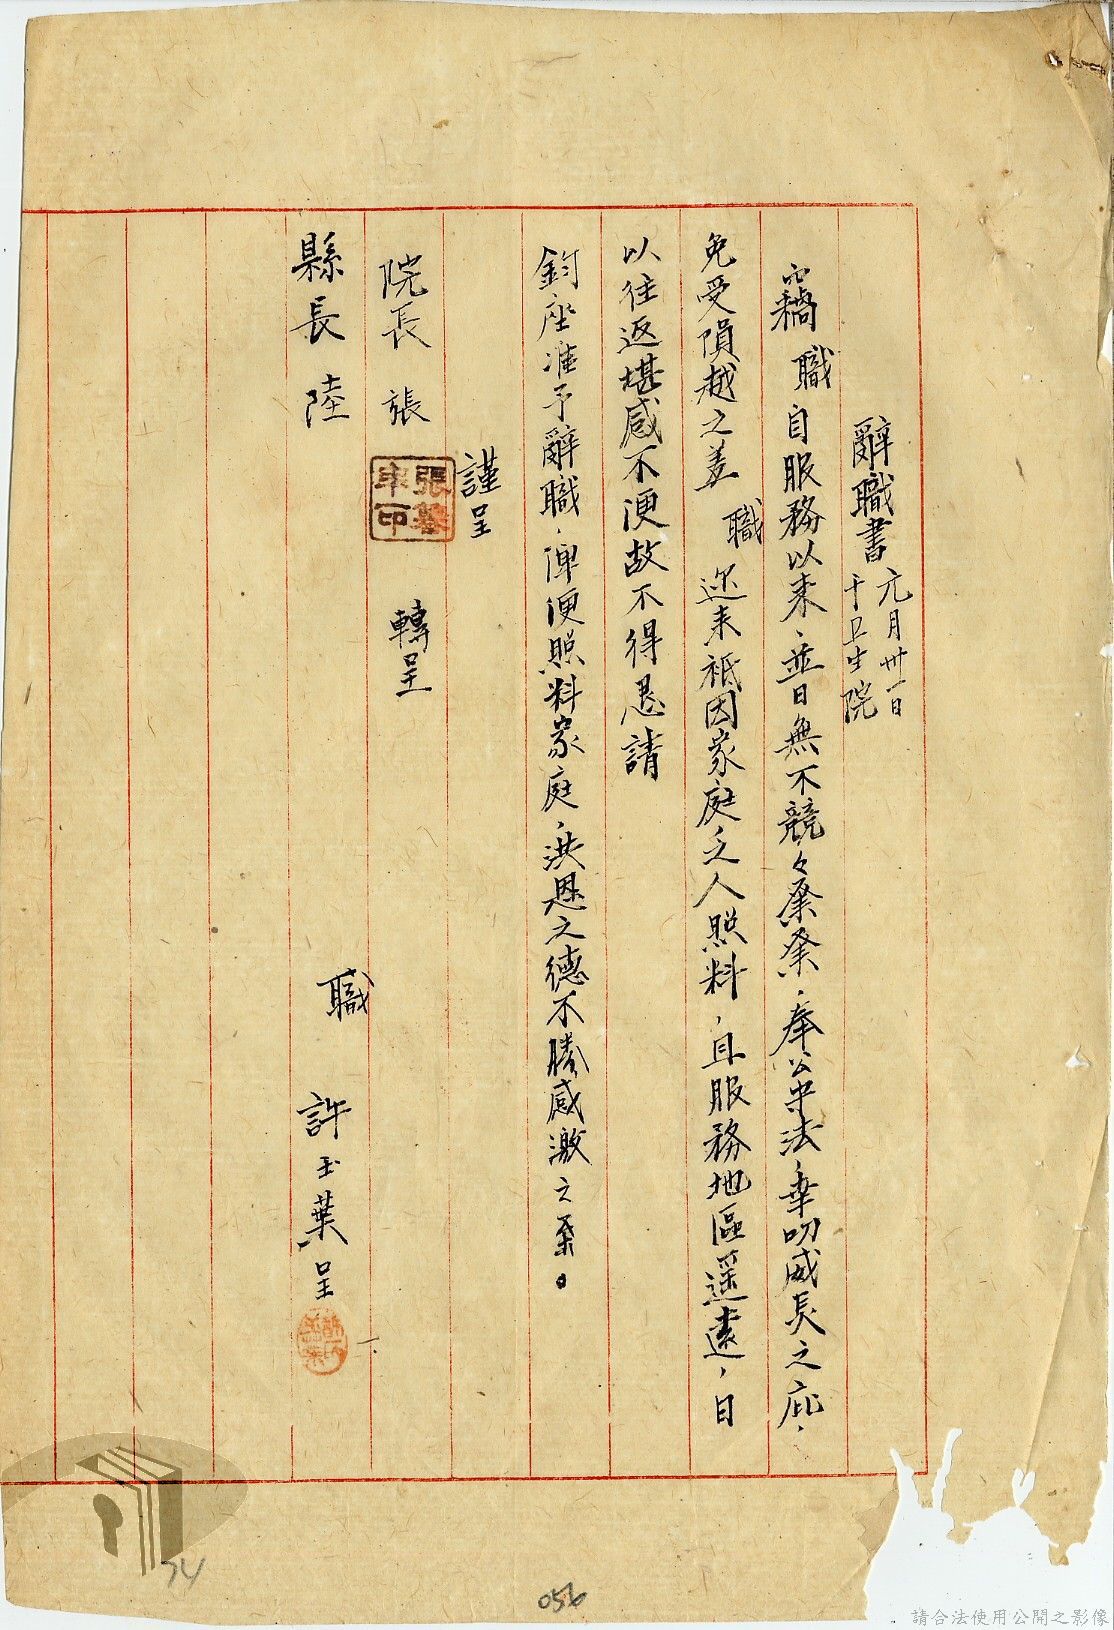 辭職書 元月卅一日
于卫生院
竊 職 自服務以來，並日無不競々業業，奉公守法，幸叨威長之庇，
免受隕越之羞 職 邇来祇因家庭乏人照料，且服務地區遥遠，目
以往返堪感不便故不得恳請
鈞座准予辭職，俾便照料家庭，洪恩之德不勝感激之至。
謹呈
院長 張 轉呈
縣長 陸
職 許玉葉呈
74
056
請合法使用公開之影像